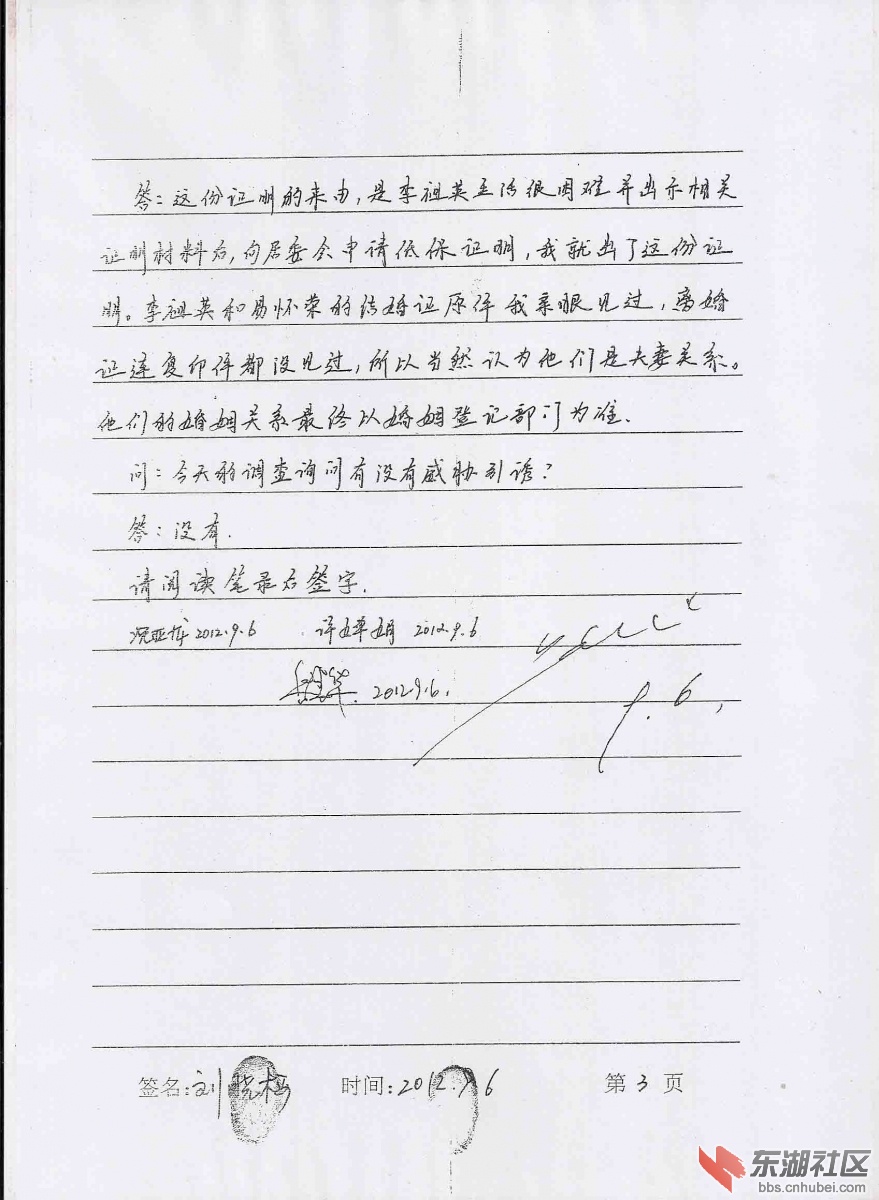 答：这份证明的来由，是李祖英生活很困难并出示相关
证明材料后，向居委会申请低保证明，我就出了这份证
明。李祖英和易怀荣的结婚证原件我亲眼见过，离婚
证连复印件都没见过，所以当然认为他们是夫妻关系。
他们的婚姻关系最终以婚姻登记部门为准.
问：今天的调查询问有没有威胁引诱？
答：没有.
请阅读笔录后签字.
2012.9.6 2012.9.6
2012.9.6.
9.6.
签名：刘晓梅 时间：2012.9.6 第3页
东湖社区
bbs.cnhubei.com